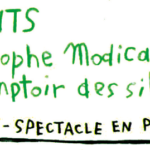 ITS
ophe Modica
mptoir des sil
-SPECTACLE EN P